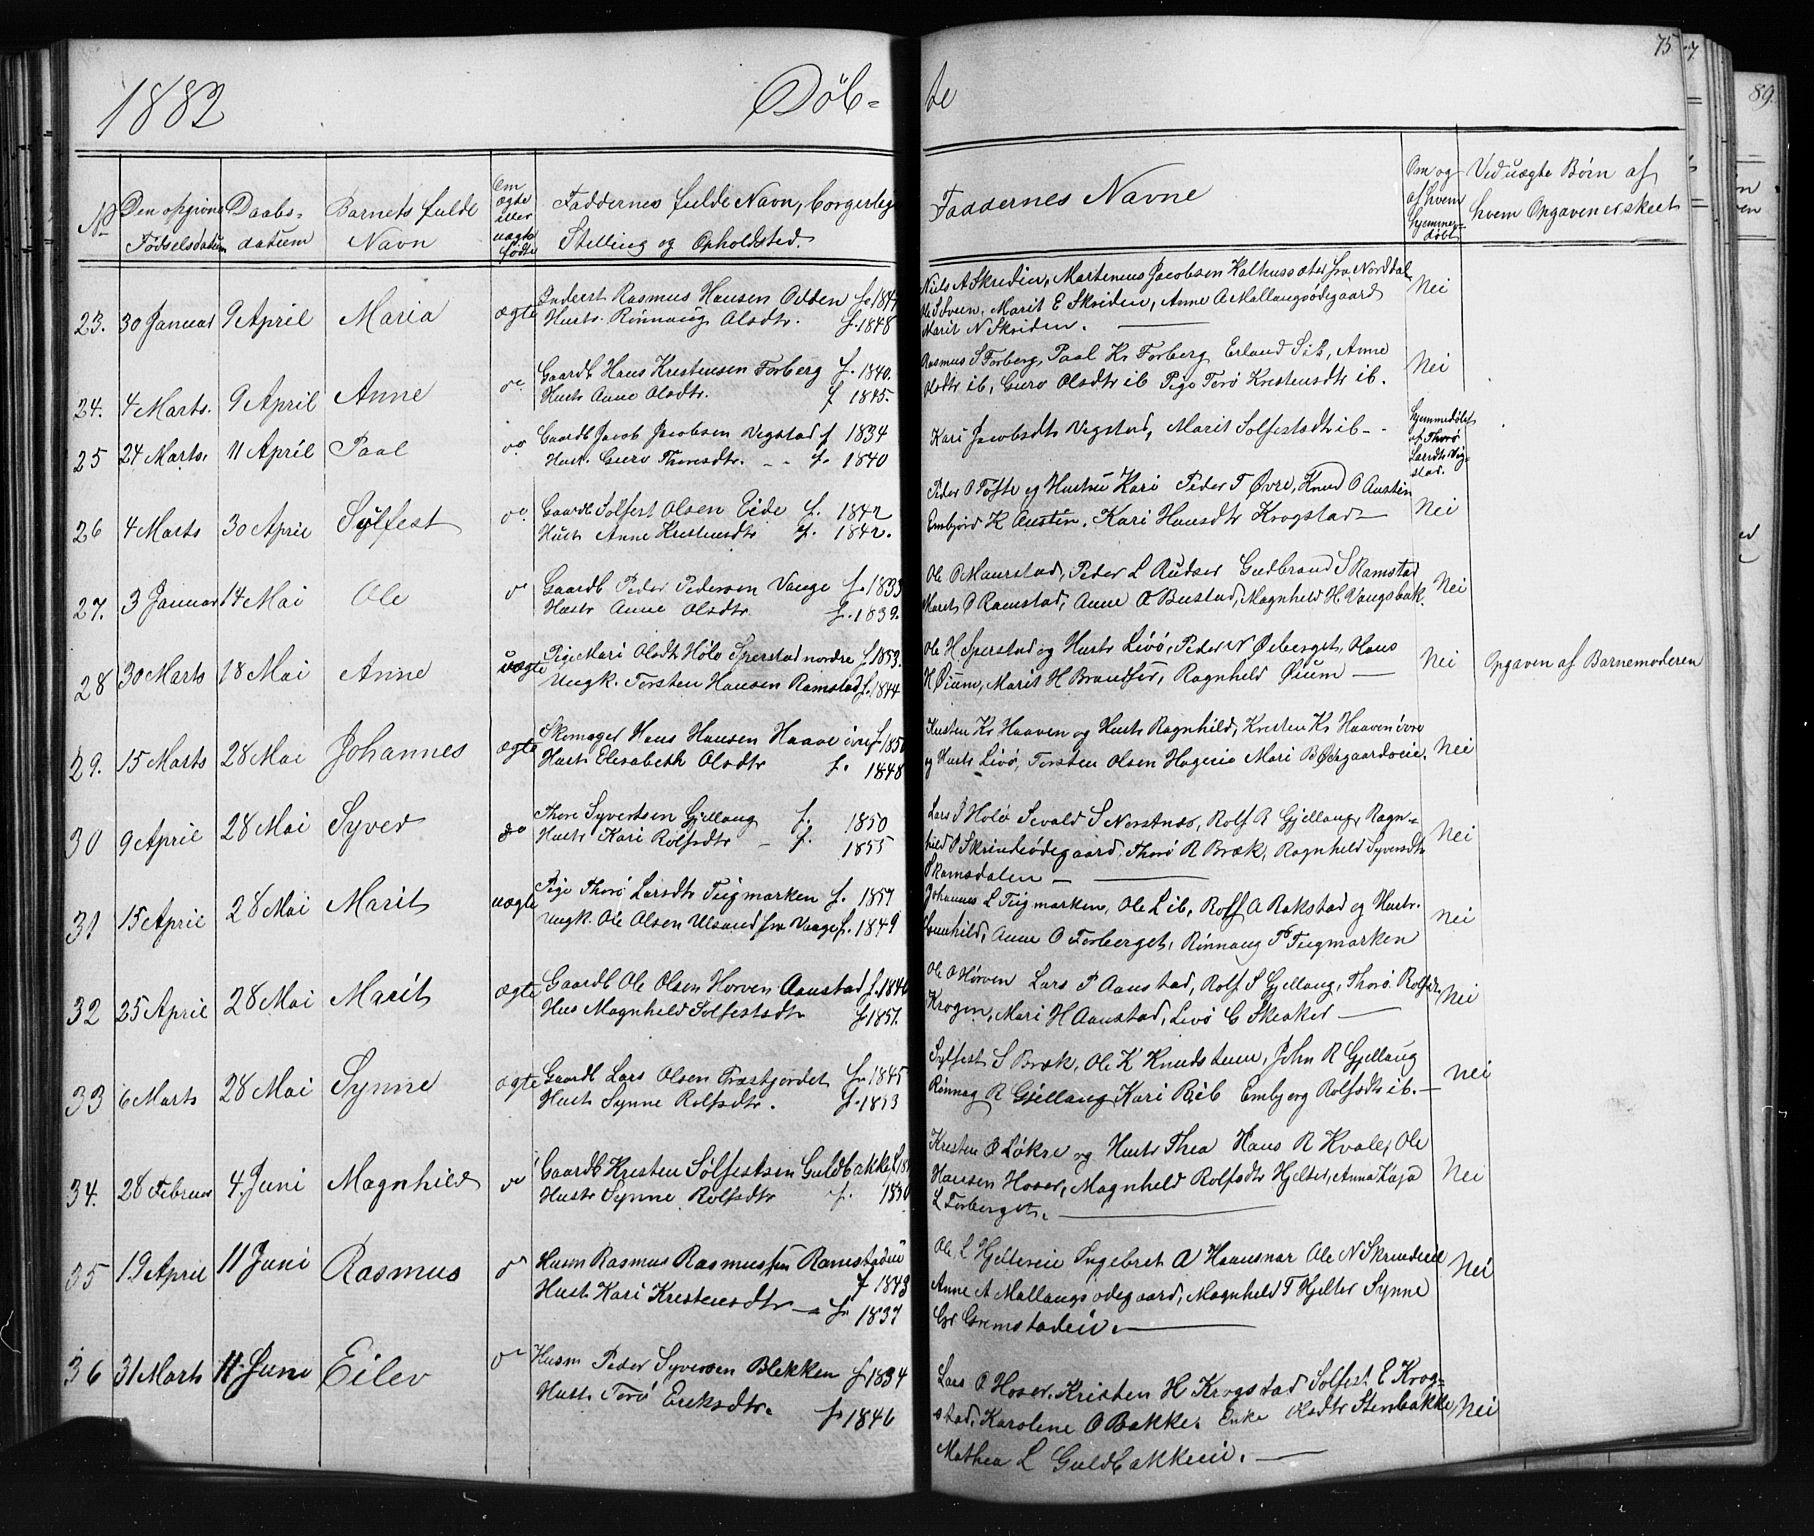 1882
Døb-
te
75
89
No
Den opgivne Fødselsdatum
Daabs-datum
Barnets fulde Navn
Om ægte eller uægte fødte
Faddernes fulde Navn, borgerlige Stilling og Opholdsted.
Faddernes Navne
Om og af hvem hjemmedøbt
Ved uægte Børn af hvem Opgaven er skeet
23. 30 Januar 9 April Maria ægte Inderst Rasmus Hansen Odden f. 184
Hustr. Rønnaug Olsdtr. f. 1848
Niels A Skriden, Martenius Jacobsen Kalhussæter fra Norddal
Marit E Skriden, Anne A Mallangsødegaard
Marit N Skriden.
Nei
24. 4 Marts. 9 April Anne do Gaardb Hans Kristensen Forberg f. 1840.
Hustr Anne Olsdtr. f 1845.
Rasmus S Forberg, Paal Kr Forberg Erland Sib, Anne
Olsdtr ib, Guro Olsdtr ib Pige Torø Kristensdtr ib.
Nei
25 24 Marts. 11 April Paal do Gaardb Jacob Jacobsen Vegstad f 1834
Hust. Guro Thoresdtr. f. 1840
Kari Jacobsdtr Vegstad, Marit Solfestsdtr ib
Hjemmedøbt af Thorø Larsdtr Vegstad.
26 4 Marts 30 April Sylfest do Gaardb Solfest Olsen Eide f. 1842
Hustr Anne Kristensdtr f. 1842.
Peder O Tofte og Hustru Kari Peder T Øvre, Knud O Austin
Embjørd K Austin, Kari Hansdtr Krogstad
Nei
27. 3 Januar 14 Mai Ole do Gaardb Peder Pedersen Vange f. 1833
Hustr Anne Olsdtr. f. 1839.
Ole O Maurstad, Peder L Rudser Gudbrand S Ramstad
Marit O Ramstad, Anne O Bustad, Magnhild H Vangsbak.
Nei
28 30 Marts 18 Mai Anne uægte Pige Mari Olsdtr Hølo Sperstad nordre f 1853.
Ungk. Torsten Hansen Ramstad f. 1844
Ole H Sperstad og Hustr Livø, Peder N Øeberget, Hans
H Øium, Marit H Brandser, Ragnheld Øium
Nei Opgaven af Barnemoderen
29. 15 Marts 28 Mai Johannes ægte Skomager Hans Hansen Haave øvre f 185
Hustr Elisabeth Olsdtr f. 1848
Kristen Kr Haaven og Hustr Ragnhild, Kristen Kr Haaven øvre
og Hustr Livø, Torsten Olsen Hageeie Mari B Ødegaardveie.
Nei
30 9 April 28 Mai Syver do Thore Syvertsen Gjellaug f. 1850
Hustr Kari Rolfsdtr f. 1855
Lars J Hølo Sevald S Norstnæs, Rolf R Gjellaug, Ragn-
hild O Skrindeødegaard, Thorø R Bræk, Ragnheld Syversdtr
Skamsdalen
Nei
31 15 April 28 Mai Marit uægte Pige Thorø Larsdtr Tugmarken f. 1857
Ungk. Ole Olsen Ulsand fra Vaage f. 1849
Johannes L Tugmarken, Ole L ib, Rolf A Rakstad og Hustr.
Gunhild, Anne O Forberget, Rønnaug P Tugmarken
Nei
32 25 April 28 Mai Marit ægte Gaardb Ole Olsen Horven Aanstad f. 184
Hus Magnheld Solfestsdtr f 1857.
Ole O Hørven Lars P Aanstad, Rolf S Gjellaug, Thorø Rolfsdtr
Krogen, Mari H Aanstad, Livø G Skeaker
Nei
33 6 Marts 28 Mai Synne ægte Gaardb Lars Olsen Træstjordet f. 1845
Hustr Synne Rolfsdtr. f. 1853
Sylfest S Bræk, Ole K Knudstuen, John R Gjellaug
Rønnag R Gjellaug Kari R ib Embjørg Rolfsdtr ib.
Nei
34. 28 Februar 4. Juni Magnhild do Gaardb Kresten Sølfestsen Guldbakke f. 18
Hustr Synne Rolfsdtr f. 1850
Kresten O Løkre og Hustr Thea Hans R Kvale, Ole
Hansen Hoser, Magnheld Rolfsdtr Hjelter, Anna Kaja
L Forberget.
Nei
35 19 April 11 Juni Rasmus do Husm Rasmus Rasmussen Ramstadeie f 1843
Hustr Kari Kristensdtr f. 1837
Ole L Hjeltereie Ingebret A Haansnar Ole N Skrindeeie
Anne A Mallangsødegaard, Magnheld T Hjelter Synne
Gr Gremstadeie.
Nei
36 31 Marts 11 Juni Eilev do Husm Peder Syversen Blekken f 1834
Hustr Torø Eriksdtr. f. 1846
Lars O Hoser, Kristen H Krogstad Solfest E Krog-
stad, Karoline O Bakke. Olsdtr Stenbakke,
Mathea L Guldbakkeeie.
Nei